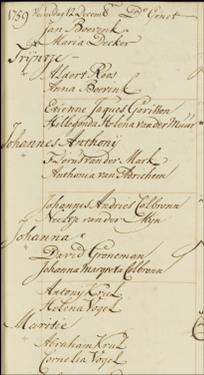 1759 Woensdag 12 Decemb Ds Genet
Jan Boerink
Maria Decker
Trijntje
Aldert Roos
Anna Boerink
Etienne Jaques Gavillon
Hillegonda Helena van der Muur
Johannes Anthonij
Floris van der Mark
Anthonia van Abrichem
Johannes Andries Colbronn
Neeltje van der Wyn
Johanna
David Groneman
Johanna Margreta Colbronn
Antony Krul
Helena Vogel
Maritie
Abraham Krul
Cornelia Vogel